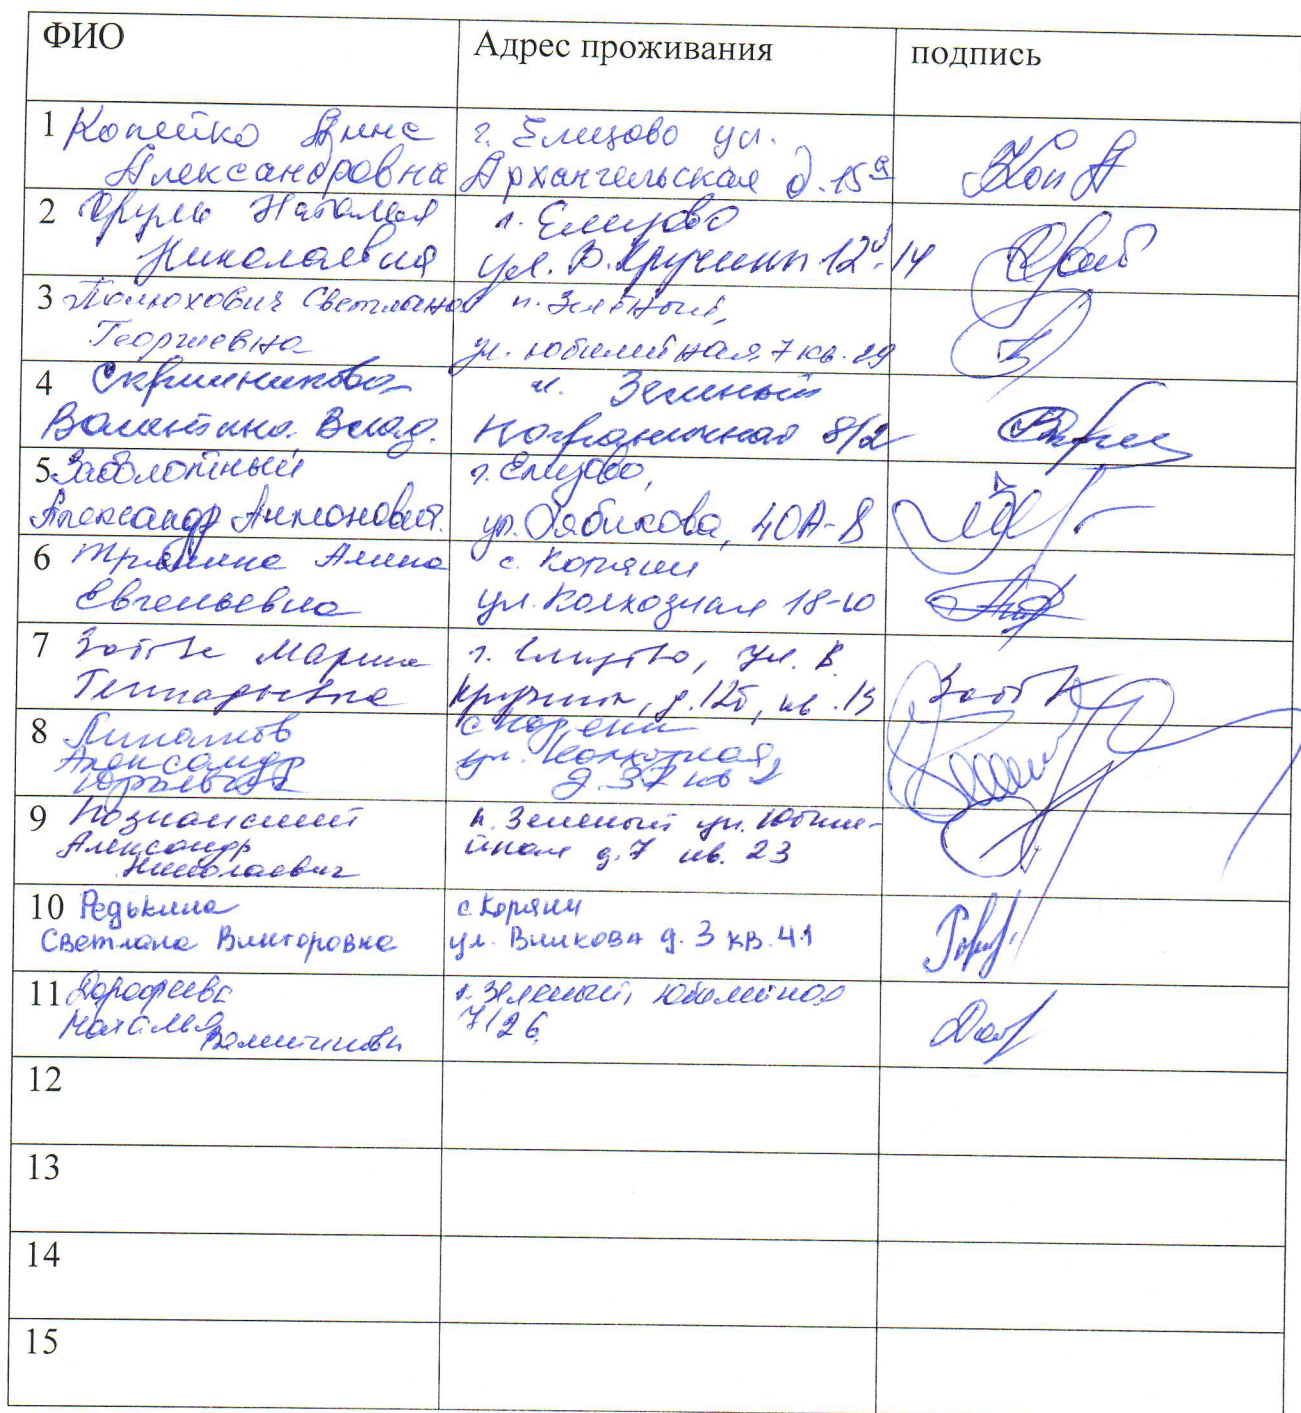 ФИО
Адрес проживания
подпись
1 Копейко Анна
Александровна
г. Елизово ул.
Архангельская д. 15а
2 Наталья
Николаевна
г. Елизово
ул. В. Кручины 14
3 Светлана
Георгиевна
п. Зелёный,
ул. Юбилейная 7 кв. 29
4
Валентина Влад.
п. Зеленый
Пограничная 8/2
5 Заболотный
Александр Антонович.
г. Елизово,
ул. Рябикова, 40А-8
6 Алина
Евгеньевна
с. Коряки
ул. Колхозная 18-10
7 Марина
Геннадьевна
г. Елизово, ул. В.
Кручины, д. 12б, кв.
8
Александр
Юрьевич
с Коряки
ул. Колхозная,
д. 37 кв 2
9 Познанский
Александр
Николаевич
п. Зеленый ул. Юбиле-
йная д. 7 кв. 23
10 Редькина
Светлана Викторовна
с. Коряки
ул. Вилкова д. 3 кв. 41
11 Дорофеева
Наталья
п. Зеленый, Юбилейная
7/26
12
13
14
15